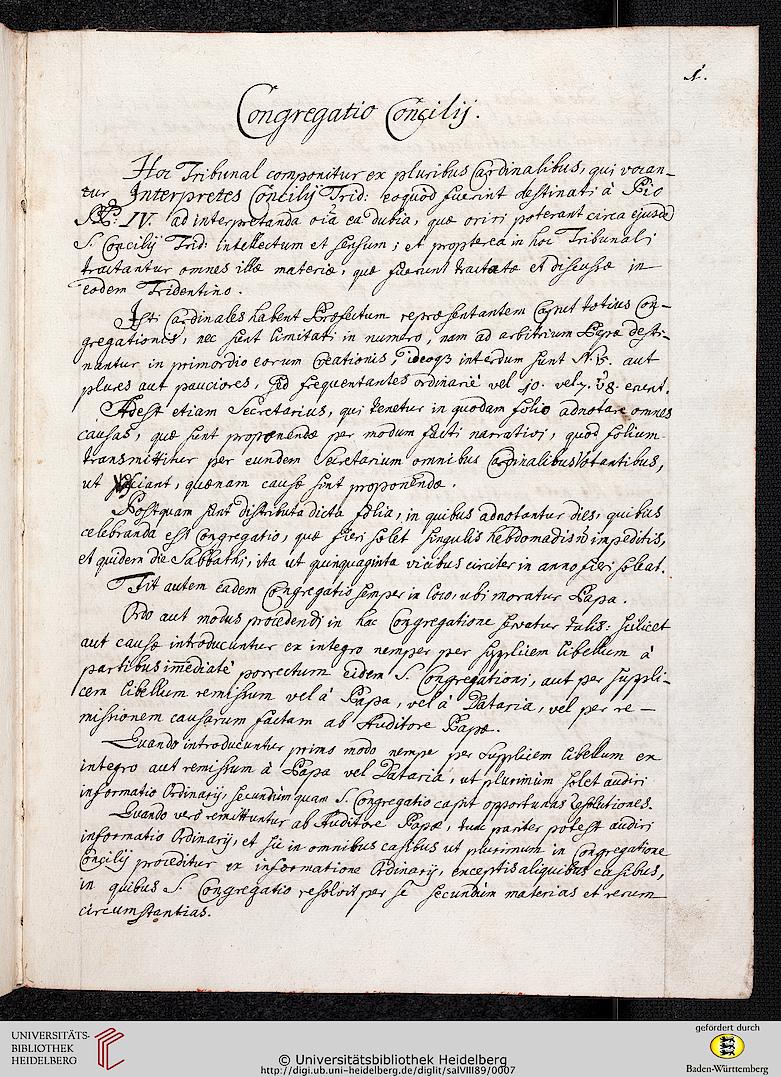 1.
Congregatio Concilij.
Hoc Tribunal componitur ex pluribus Cardinalibus, qui vocan-
tur Interpretes Concilij Trid: eoquòd fuerint destinati à Pio
PP: IV. ad interpretanda oīa ea dubia, quæ oriri poterant circa ejusdē
S. Concilij Trid: intellectum et sensum; et propterea in hoc Tribunali
tractantur omnes illæ materiæ, quæ fuerunt tractatæ et discussæ in
eodem Tridentino.
Isti Cardinales habent Præfectum repræsentantem Caput totius Con-
gregationis, nec sunt limitati in numero, nam ad arbitrium Papæ desti-
nantur in primordio eorum Creationis, ideoq3 interdum sunt N. aut
plures aut pauciores, sed frequentantes ordinariè vel 10. vel 8. erunt.
Adest etiam Secretarius, qui tenetur in quodam folio adnotare omnes
causas, quæ sunt proponendæ per modum facti narrativi, quod folium
transmittitur per eundem Secretarium omnibus Cardinalibus Votantibus,
ut sciant, quænam causæ sint proponendæ.
Postquam sunt distributa dicta folia, in quibus adnotantur dies, quibus
celebranda est Congregatio, quæ fieri solet singulis hebdomadis impeditis,
et quidem die Sabbathi, ita ut quinquaginta vicibus circiter in anno fieri soleat.
Fit autem eadem Congregatio semper in loco, ubi moratur Papa.
Ordo aut modus procedendi in hac Congregatione servatur talis: scilicet
aut causæ introducuntur ex integro nempe per supplicem libellum à
partibus im̄ediatè porrectum eidem S. Congregationi, aut per suppli-
cem libellum remissum vel à Papa, vel à Dataria, vel per re-
missionem causarum factam ab Auditore Papæ.
Quando introducuntur primo modo nempe per supplicem libellum ex
integro aut remissum à Papa vel Dataria, ut plurimùm solet audiri
informatio Ordinarij, secundùm quam S. Congregatio capit opportunas resolutiones.
Quando verò remittuntur ab Auditore Papæ, tunc pariter potest audiri
informatio Ordinarij, et sic in omnibus casibus ut plurimum in Congregatione
Concilij proceditur ex informatione Ordinarij, exceptis aliquibus casibus,
in quibus S. Congregatio resolvit per se secundùm materias et rerum
circumstantias.
UNIVERSITÄTS-
BIBLIOTHEK
HEIDELBERG
© Universitätsbibliothek Heidelberg
http://digi.ub.uni-heidelberg.de/diglit/salVIII89/0007
gefördert durch
Baden-Württemberg